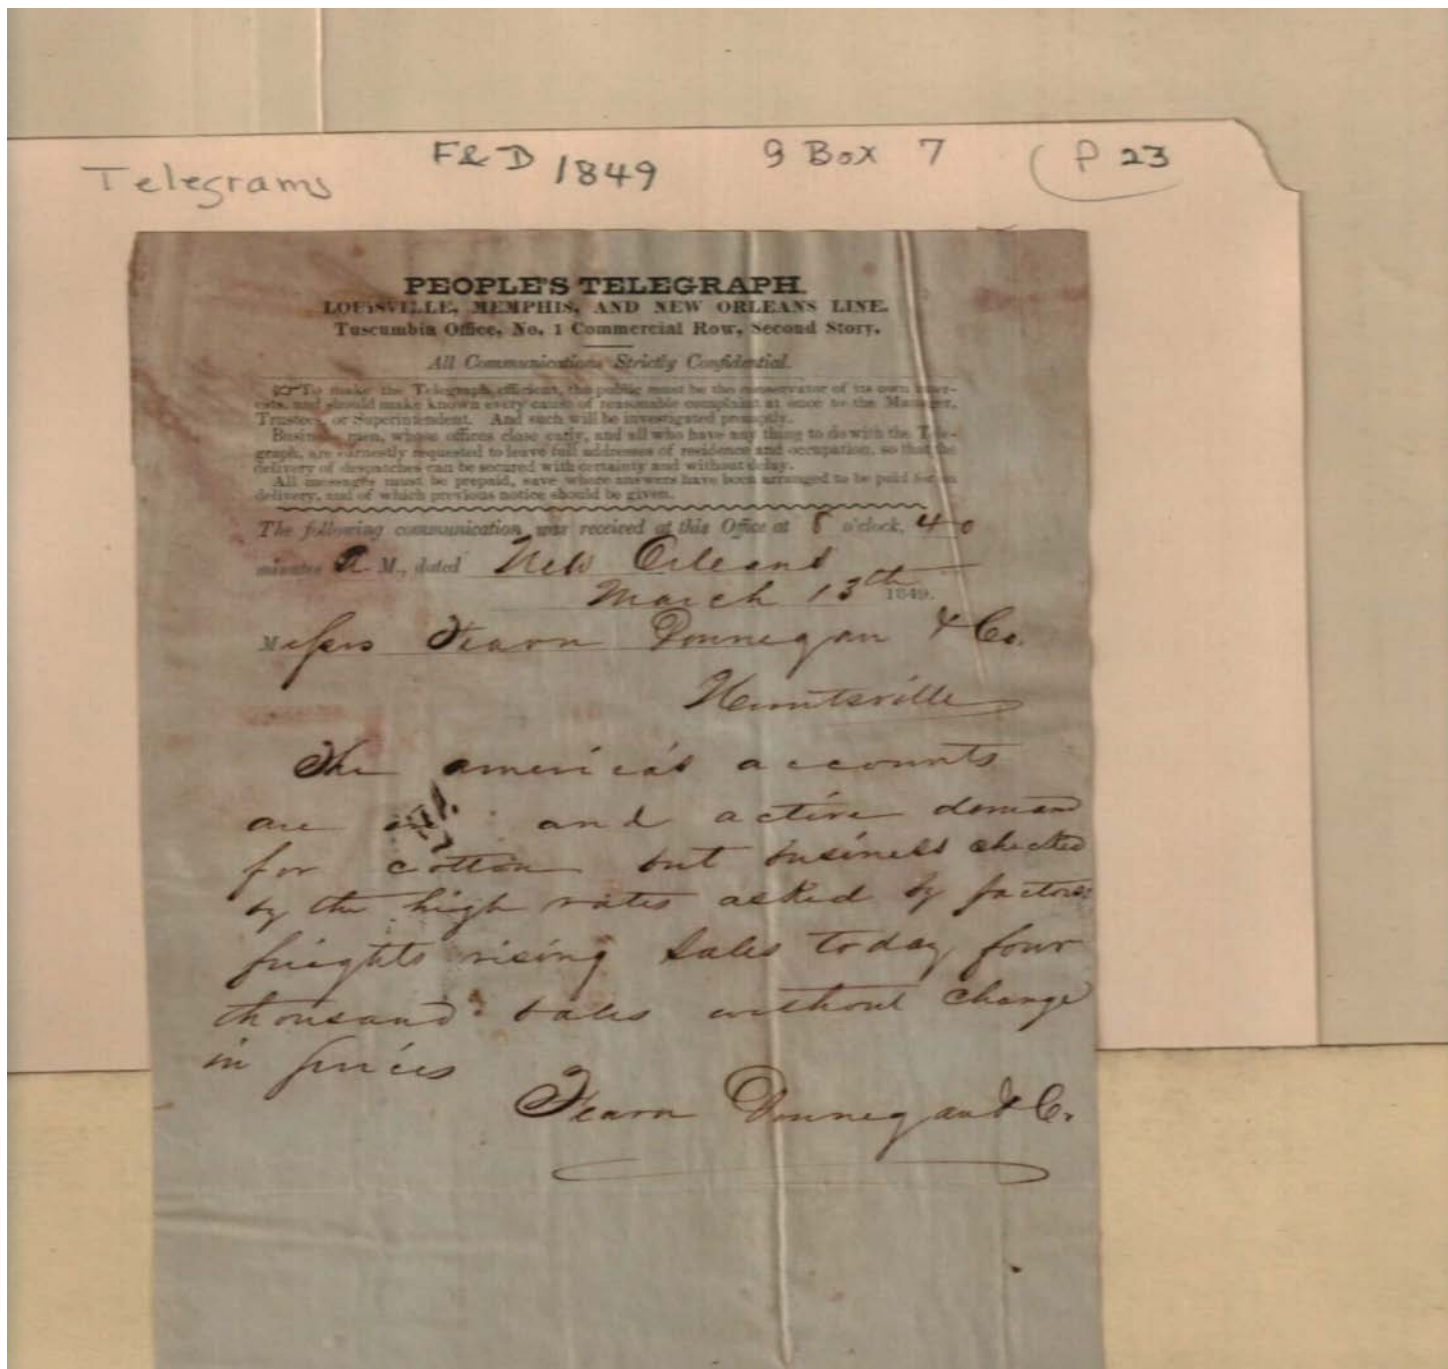 Telegrams F&D 1849 9 Box 7 P 23
PEOPLE'S TELEGRAPH.
LOUISVILLE, MEMPHIS, AND NEW ORLEANS LINE.
Tuscumbia Office, No. 1 Commercial Row, Second Story.
All Communications Strictly Confidential.
☞To make the Telegraph efficient, the public must be the conservator of its own inter-
ests, and should make known every cause of reasonable complaint at once to the Manager,
Trustees, or Superintendent. And such will be investigated promptly.
Business men, whose offices close early, and all who have any thing to do with the Tele-
graph, are earnestly requested to leave full addresses of residence and occupation, so that the
delivery of despatches can be secured with certainty and without delay.
All messages must be prepaid, save where answers have been arranged to be paid for on
delivery, and of which previous notice should be given.
The following communication was received at this Office at 8 o'clock, 40
minutes A M., dated New Orleans
March 13th 1849.
Messrs Fearn Donnegan & Co.
Huntsville
The america's accounts
are and active demand
for cotton but business checked
by the high rates asked by factors
freights rising Sales today four
thousand bales without change
in prices
Fearn Donnegan & Co.